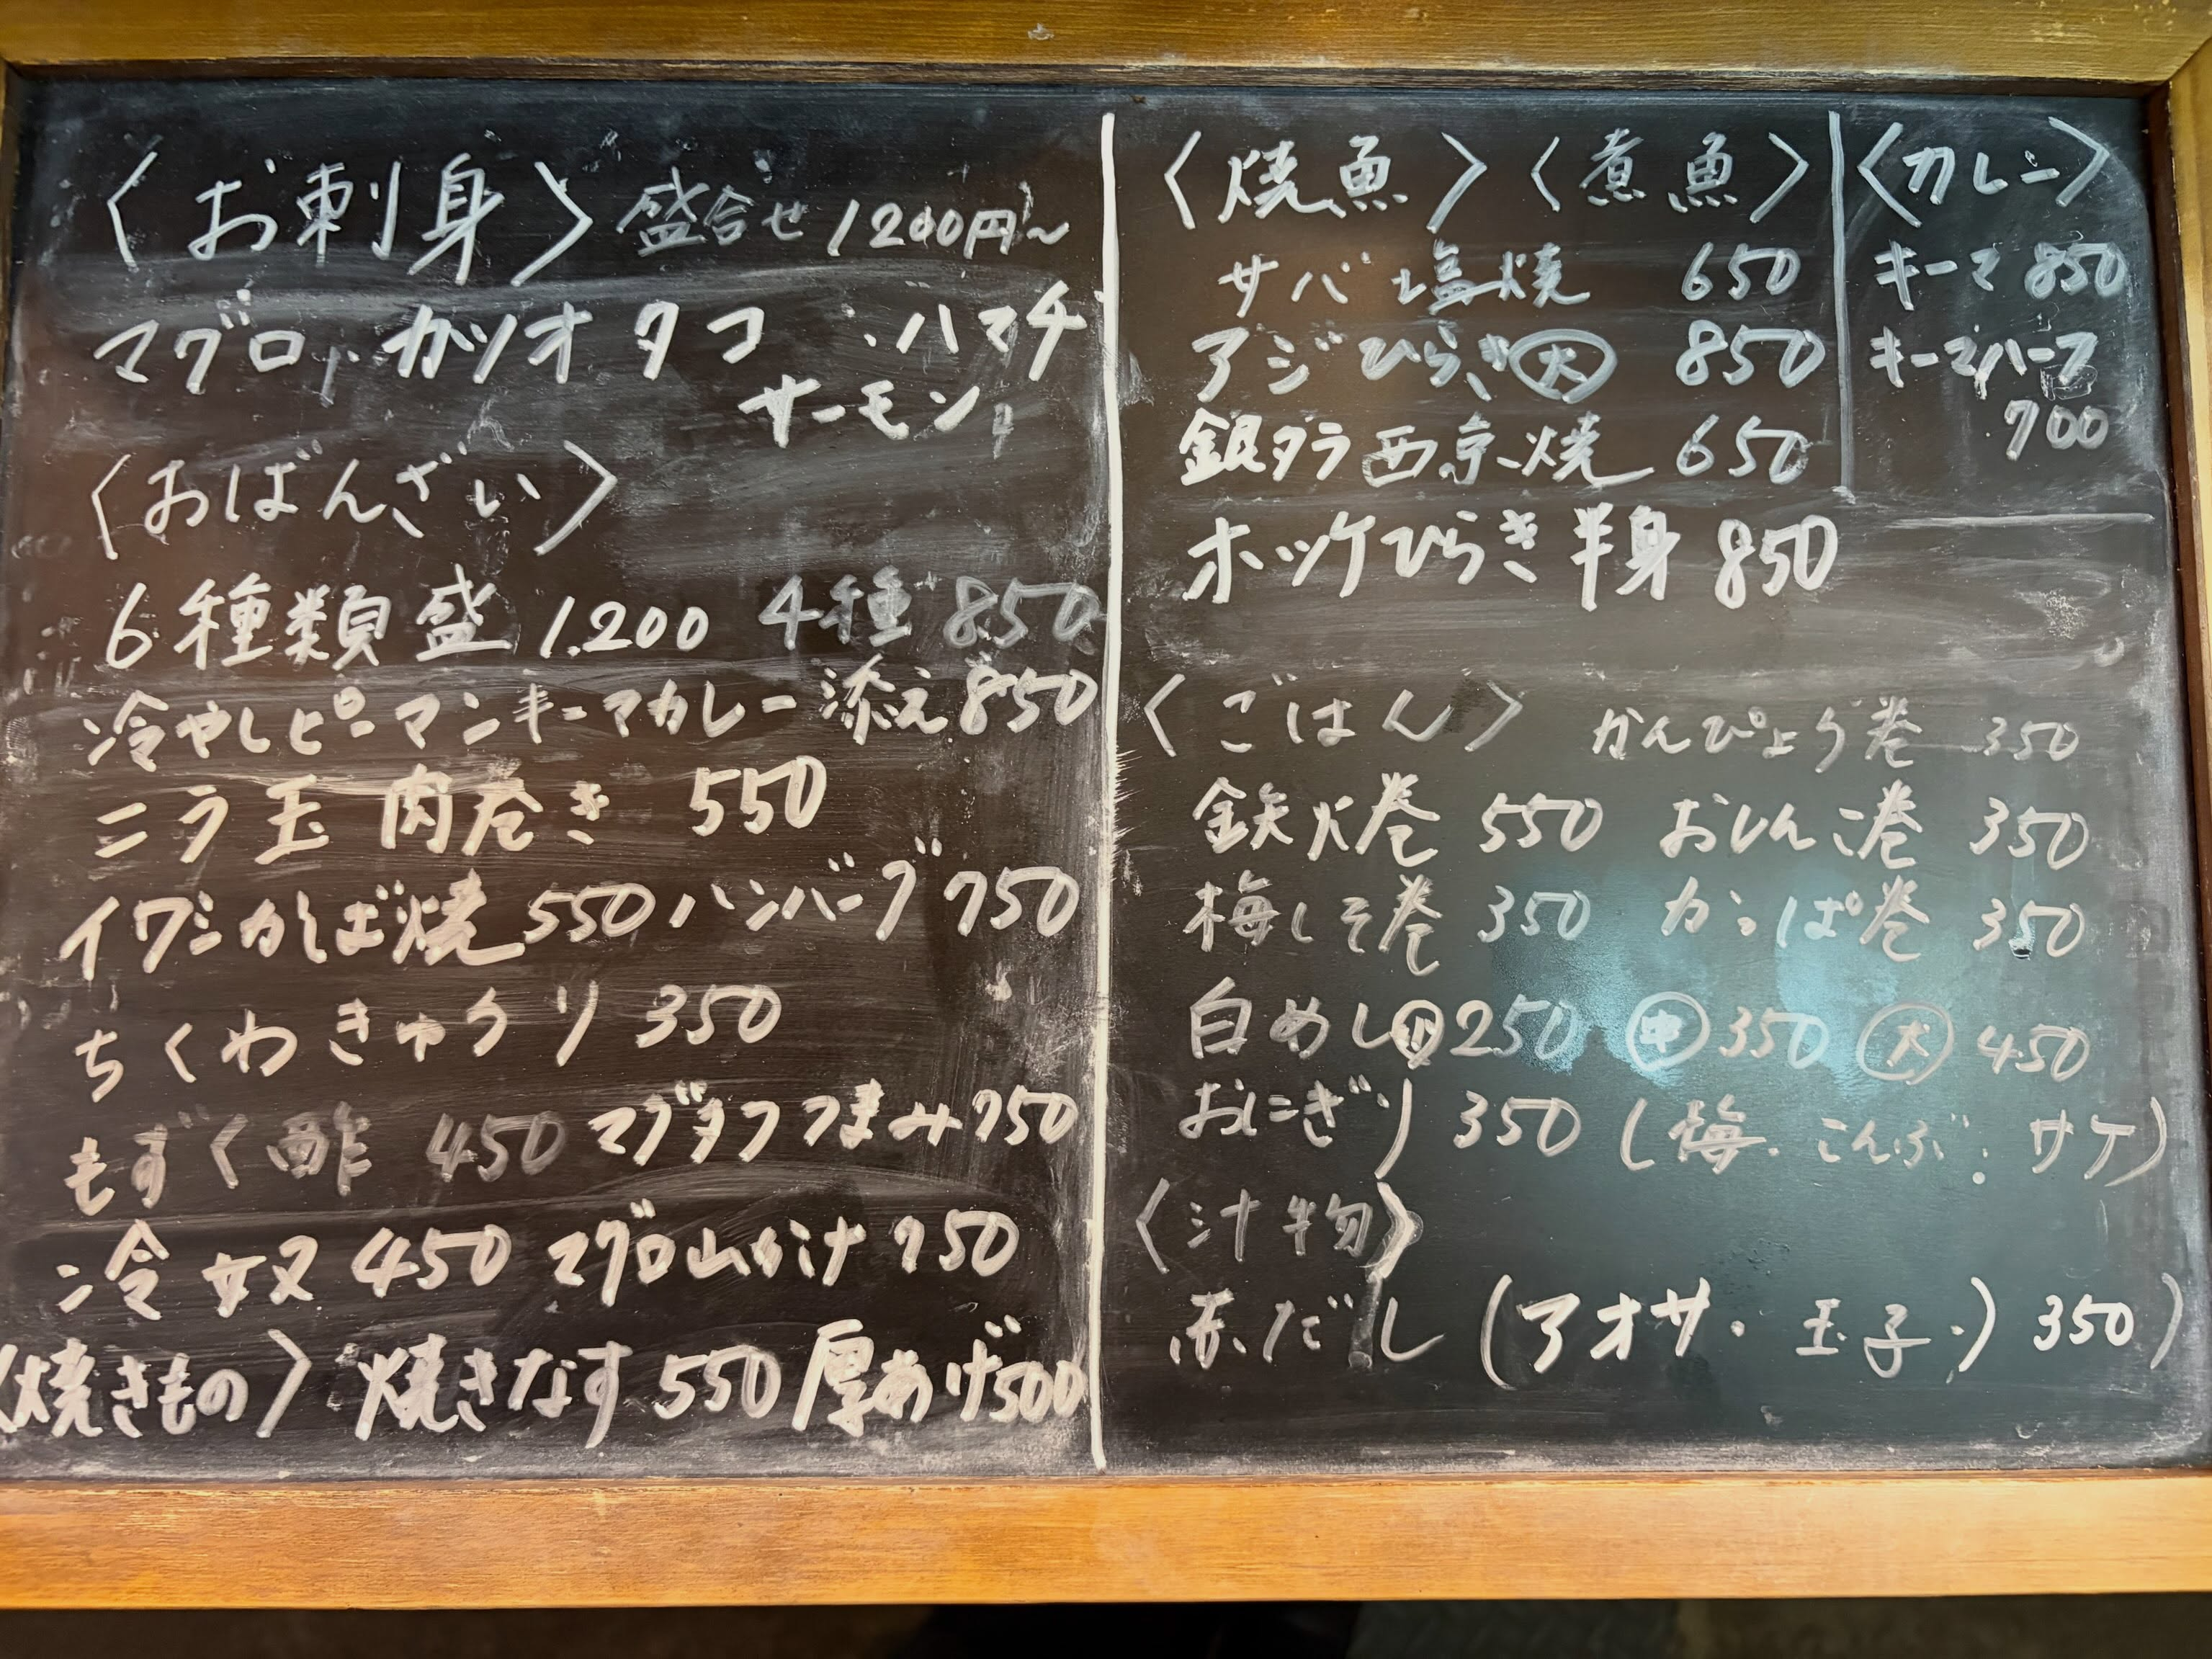 〈お刺身〉盛合せ 1200円～
マグロ、カツオ タコ ・ハマチ
サーモン
〈おばんざい〉
6種類盛 1.200 4種 850
冷やしピーマンキーマカレー添え 850
ニラ玉 肉巻き 550
イワシかば焼 550 ハンバーグ 750
ちくわきゅうり 350
もずく酢 450 マグタクつまみ 750
冷奴 450 マグロ山かけ 750
〈焼きもの〉焼きなす 550 厚あげ 500
〈焼魚〉〈煮魚〉
サバ塩焼 650
アジひらき 大 850
銀ダラ西京焼 650
ホッケひらき半身 850
〈カレー〉
キーマ 850
キーマハーフ
700
〈ごはん〉 かんぴょう巻 350
鉄火巻 550 おしんこ巻 350
梅しそ巻 350 かっぱ巻 350
白めし 小 250 中 350 大 450
おにぎり 350 (梅・こんぶ・サケ)
〈汁物〉
赤だし (アオサ・玉子・) 350)